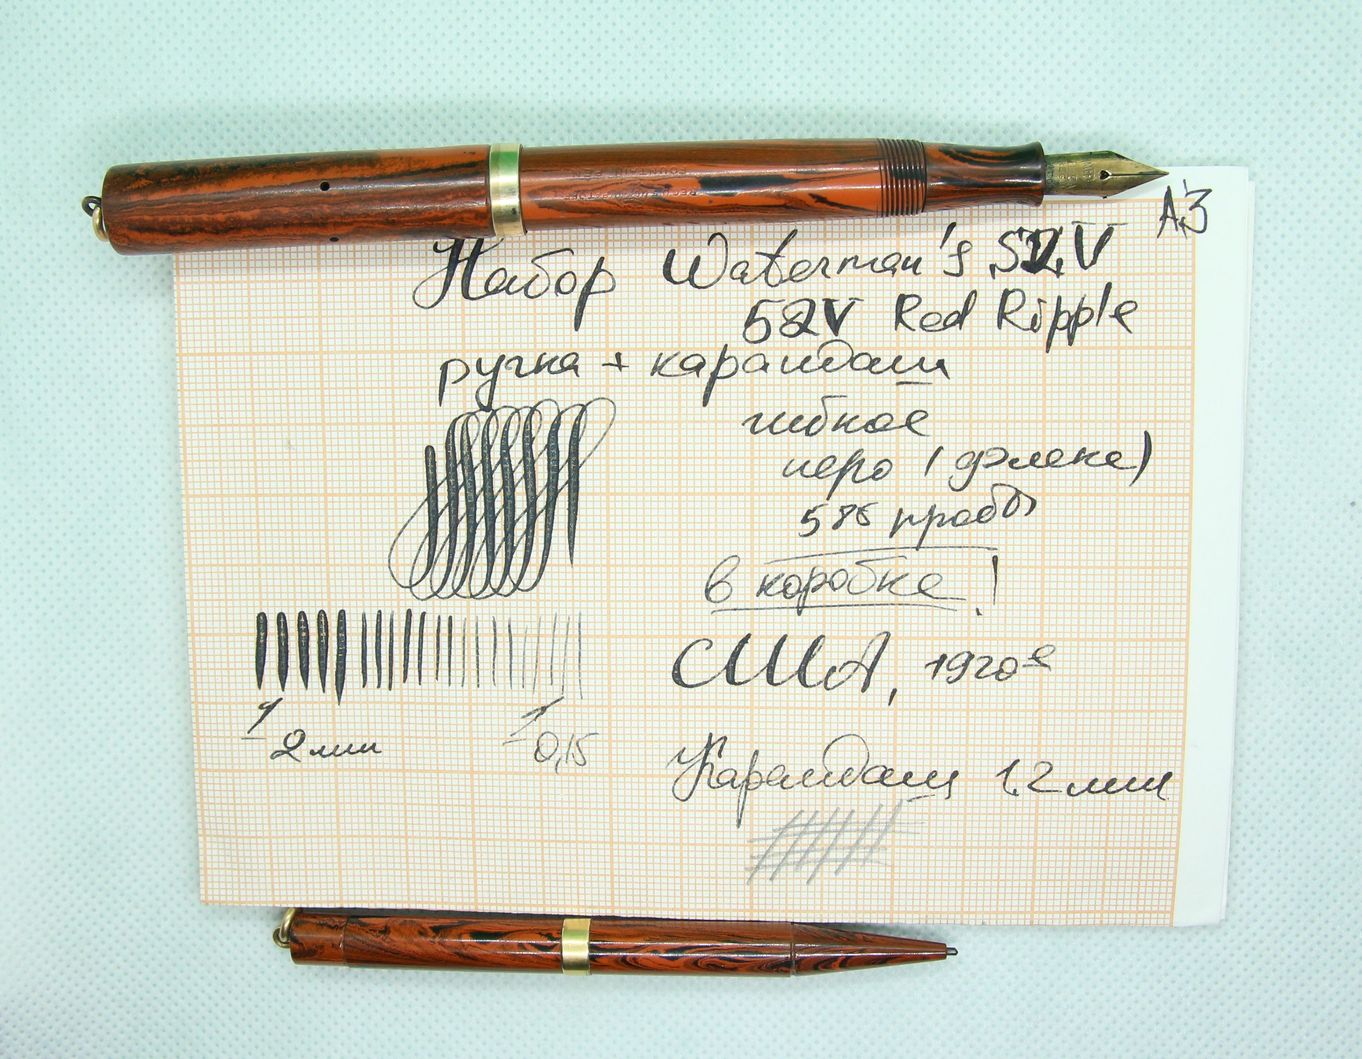 А3
Набор Waterman's 52V
52V Red Ripple
ручка + карандаш
гибкое
перо (флекс)
585 пробы
в коробке!
США, 1920е
2 мм
0,15
Карандаш 1.2 мм